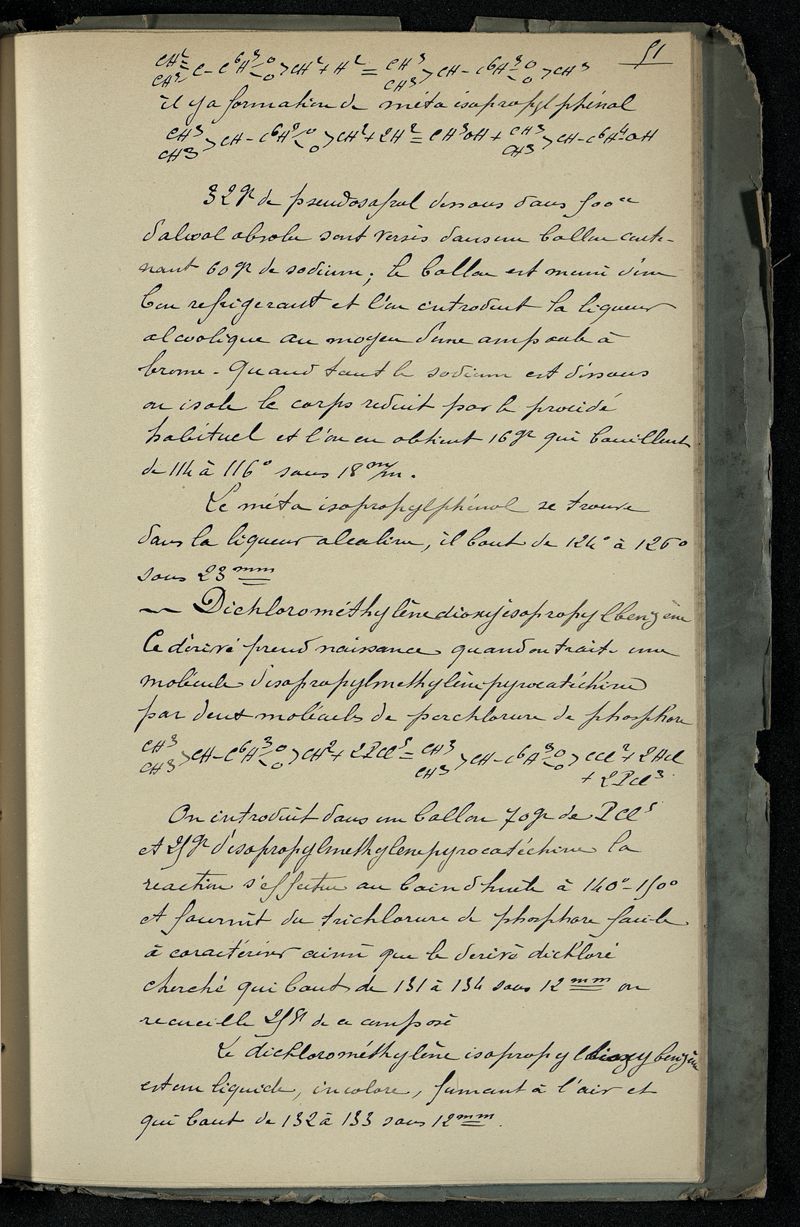 51
CH²/CH³ > C – C⁶H³ <O/O> CH² + H² = CH³/CH³ > CH – C⁶H³ <O/O> CH³
il y a formation de méta isopropylphénol
CH³/CH³ > CH – C⁶H³ <O/O> CH² + 2H² = CH³OH + CH³/CH³ > CH – C⁶H⁴ – OH
32gr de pseudosafrol dissous dans 500cc
d'alcool absolu sont versés dans un ballon conte-
nant 60gr de sodium; le ballon est muni d'un
bon refrigerant et l'on introduit la liqueur
alcoolique au moyen d'une ampoule à
brome - Quand tout le sodium est dissous
on isole le corps reduit par le procédé
habituel et l'on en obtient 16gr qui bouillent
de 114 à 116° sous 18m/m.
Le méta isopropylphénol se trouve
dans la liqueur alcaline, il bout de 124° à 126°
sous 23mm
— Dichlorométhylènedioxyisopropylbenzène
Ce dérivé prend naissance quand on traite une
molécule d'isopropylméthylènepyrocatéchine
par deux molécules de perchlorure de phosphore
CH³/CH³ > CH – C⁶H³ <O/O> CH² + 2PCl⁵ = CH³/CH³ > CH – C⁶H³ <O/O> CCl² + 2HCl
+ 2PCl³.
On introduit dans un ballon 70gr de PCl⁵
et 25gr d'isopropylméthylènepyrocatéchine la
reaction s'effectue au bain d'huile à 140°-150°
et fournit du trichlorure de phosphore facile
à caractériser ainsi que le derivé dichloré
cherché qui bout de 131 à 134 sous 12mm on
recueille 25gr de ce composé
Le dichlorométhylène isopropyldioxybenzène
est un liquide, incolore, fumant à l'air et
qui bout de 132 à 133 sous 12mm.